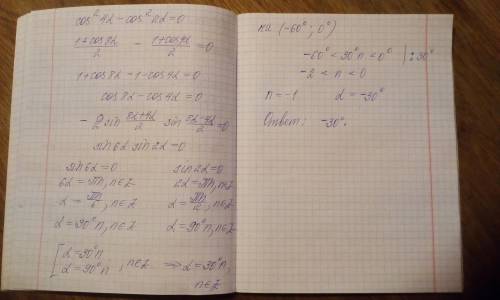 cos²4α − cos²2α = 0
(1+cos8α)/2 − (1+cos4α)/2 = 0
1+cos8α −1−cos4α = 0
cos8α − cos4α = 0
− 2 sin (8α+4α)/2 sin (8α−4α)/2 = 0
sin6α sin2α = 0
sin6α = 0 sin2α = 0
6α = πn, n∈Z 2α = πn, n∈Z
α = πn/6, n∈Z α = πn/2, n∈Z
α = 30°n, n∈Z α = 90°n, n∈Z
[α = 30°n
α = 90°n , n∈Z ⇒ α = 30°n,
n∈Z
на (−60°; 0°)
−60° < 30°n < 0° |: 30°
−2 < n < 0
n = −1 α = −30°
Ответ: −30°.